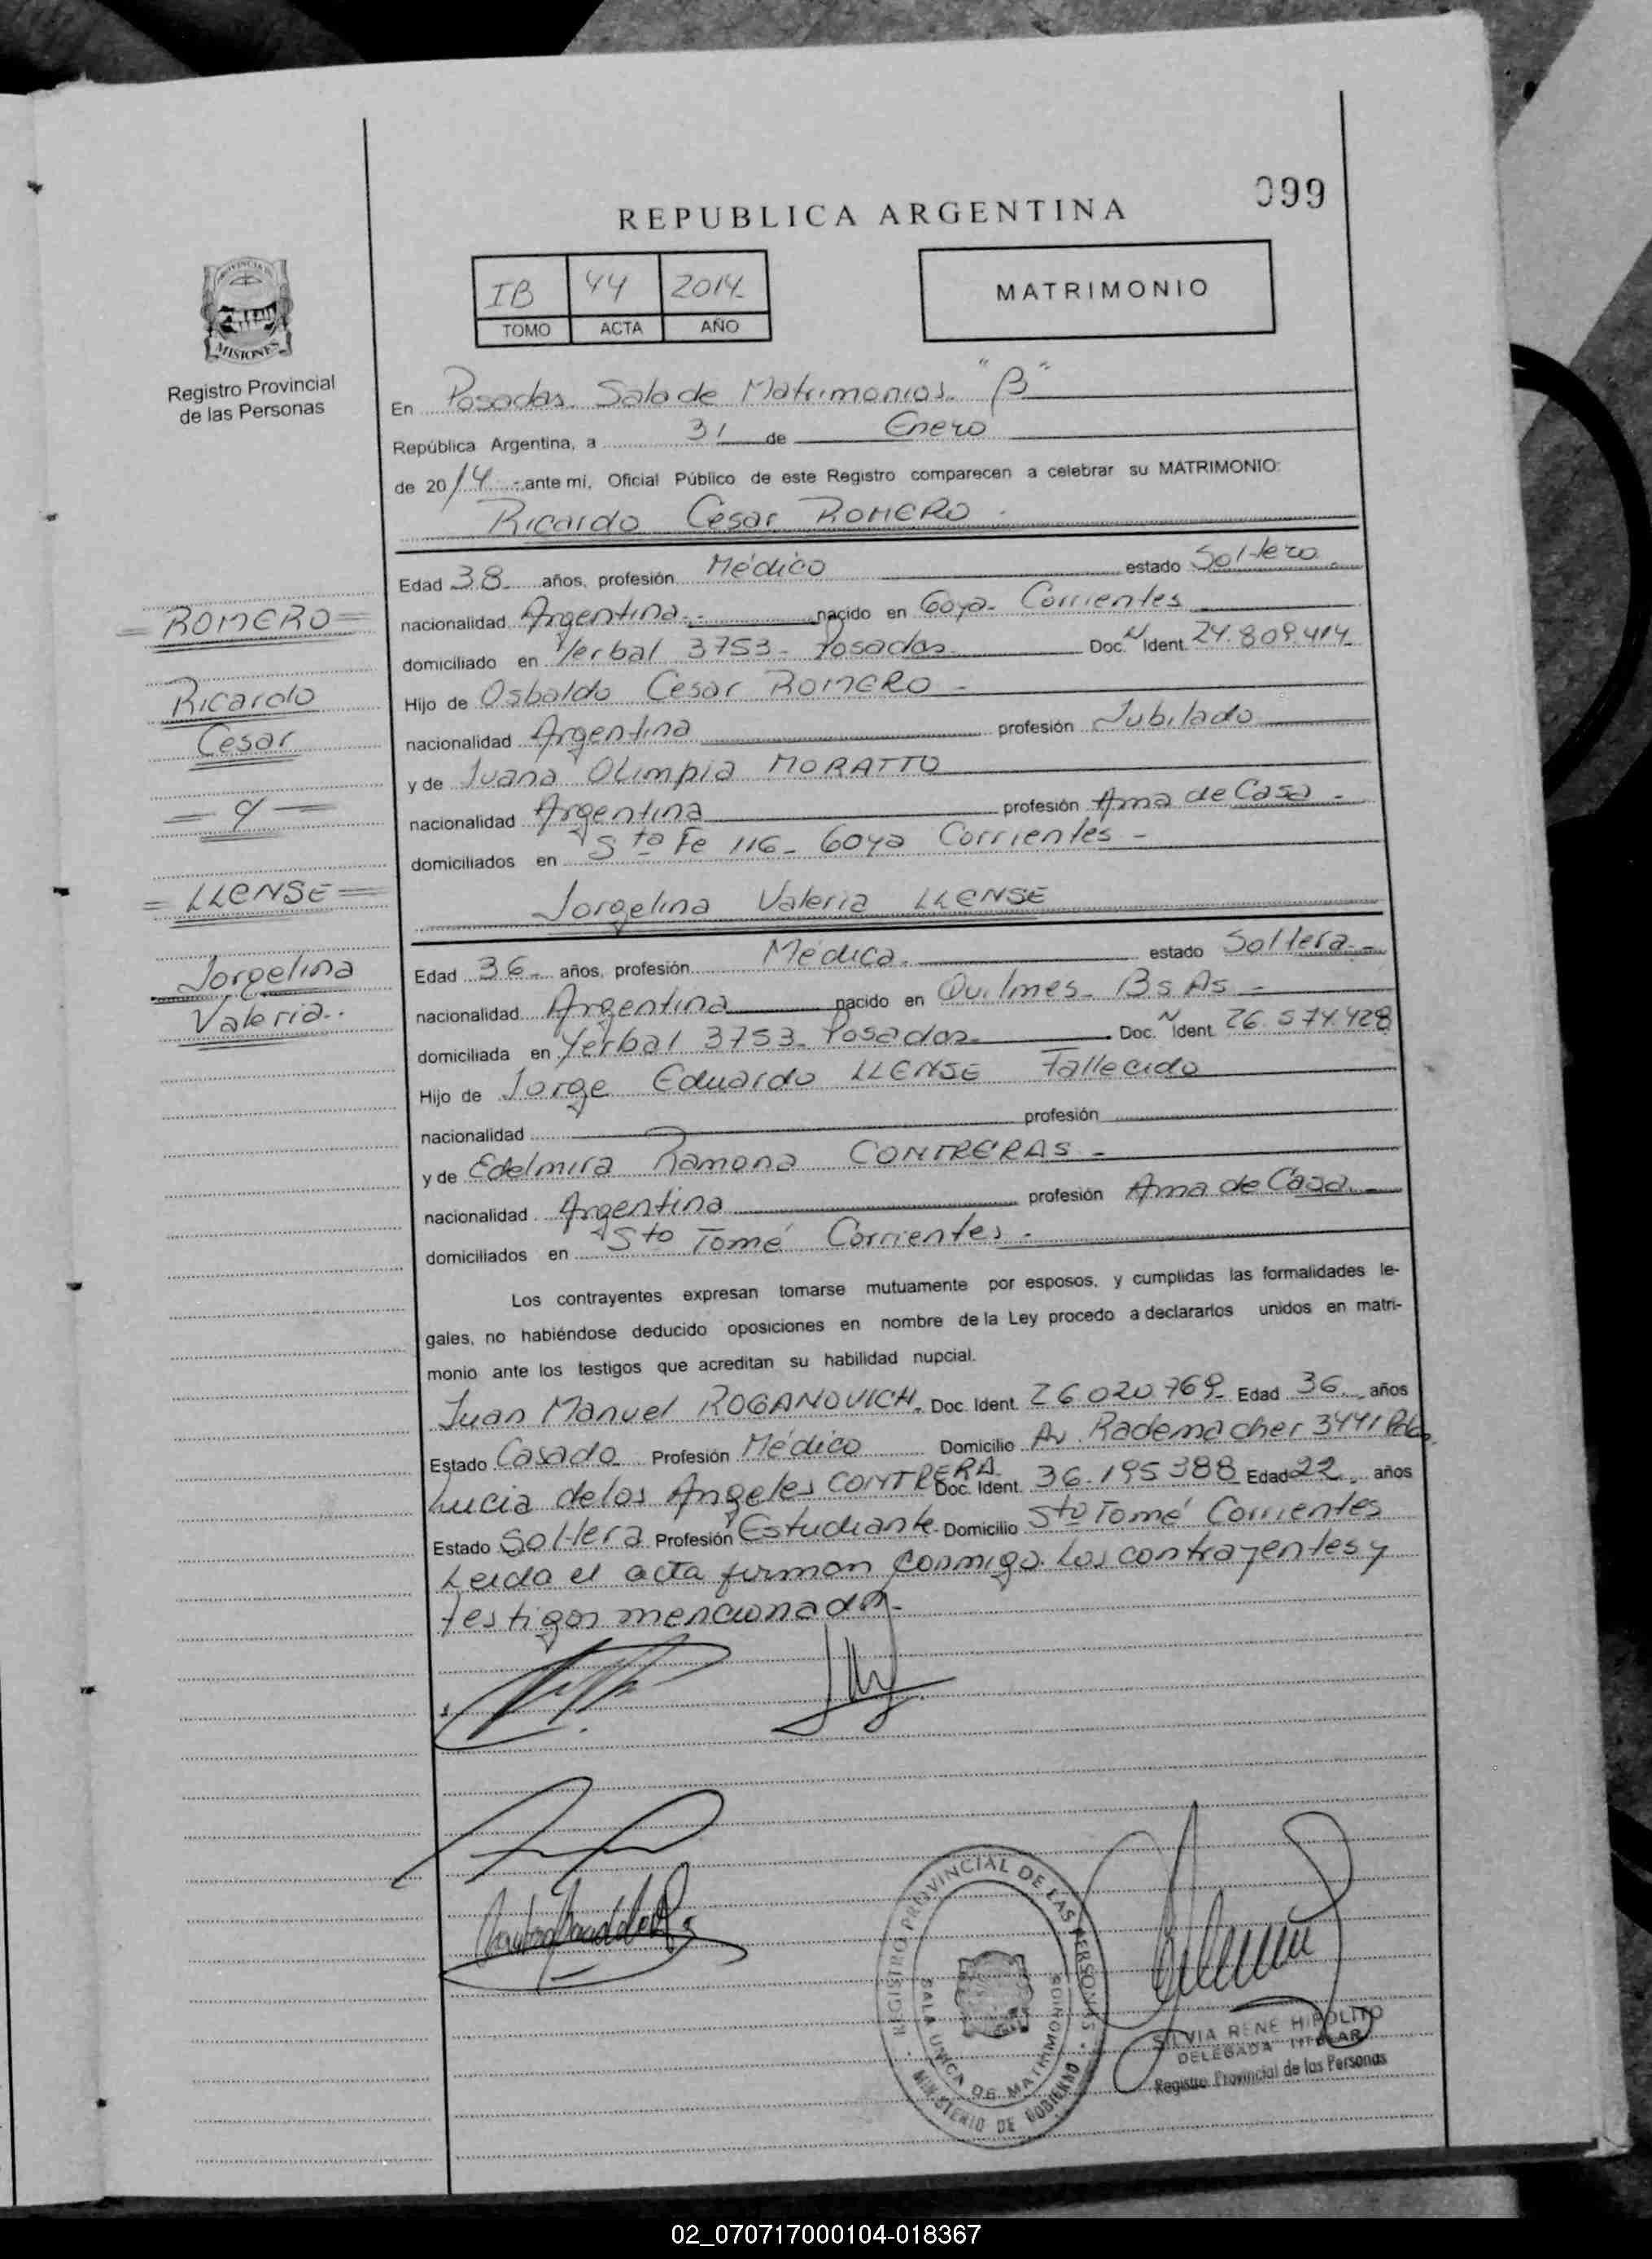 099
REPUBLICA ARGENTINA
IB 44 2014
TOMO ACTA AÑO
MATRIMONIO
PROVINCIA DE
MISIONES
Registro Provincial
de las Personas
En Posadas. Sala de Matrimonios. "B"
República Argentina, a 31 de Enero
de 2014 - ante mí, Oficial Público de este Registro comparecen a celebrar su MATRIMONIO:
Ricardo Cesar ROMERO -
Edad 38 años, profesión Médico estado Soltero
nacionalidad Argentina nacido en Goya - Corrientes
domiciliado en Yerbal 3753 - Posadas Doc. N Ident. 24.809.414
Hijo de Osbaldo Cesar ROMERO -
nacionalidad Argentina profesión Jubilado
y de Juana Olimpia MORATTO
nacionalidad Argentina profesión Ama de Casa -
domiciliados en Sta Fe 116 - Goya Corrientes -
Jorgelina Valeria LLENSE
Edad 36 años, profesión Médica. estado Soltera -
nacionalidad Argentina nacido en Quilmes - Bs As -
domiciliada en Yerbal 3753 - Posadas Doc. N Ident. 26.574.428
Hijo de Jorge Eduardo LLENSE Fallecido
nacionalidad profesión
y de Edelmira Ramona CONTRERAS -
nacionalidad Argentina profesión Ama de Casa -
domiciliados en Sto Tomé Corrientes -
Los contrayentes expresan tomarse mutuamente por esposos, y cumplidas las formalidades le-
gales, no habiéndose deducido oposiciones en nombre de la Ley procedo a declararlos unidos en matri-
monio ante los testigos que acreditan su habilidad nupcial.
Juan Manuel ROGANOVICH. Doc. Ident. 26.020.769 Edad 36 años
Estado Casado Profesión Médico Domicilio Av. Rademacher 3441 Pdas.
Lucia de los Angeles CONTRERA Doc. Ident. 36.195.388 Edad 22 años
Estado Soltera Profesión Estudiante Domicilio Sto Tomé Corrientes
Leida el acta firman conmigo los contrayentes y
testigos mencionados.
= ROMERO =
Ricardo
Cesar
= y =
= LLENSE =
Jorgelina
Valeria.
REGISTRO PROVINCIAL DE LAS PERSONAS
SALA UNICA DE MATRIMONIOS
MINISTERIO DE GOBIERNO
SILVIA RENE HIPOLITO
DELEGADA TITULAR
Registro Provincial de las Personas
02_070717000104-018367